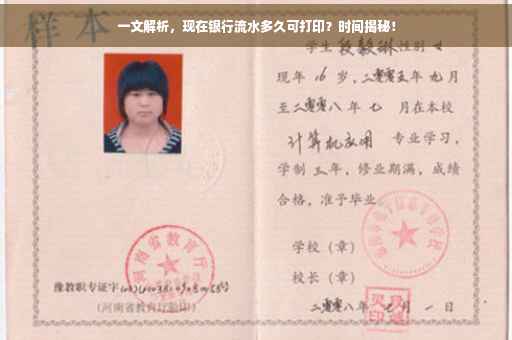 一文解析，现在银行流水多久可打印？时间揭秘！
样本
学生段毅琳性别女
现年16岁，二零零五年九月
至二零零八年七月在本校
计算机应用专业学习，
学制三年，修业期满，成绩
合格，准予毕业。
学校（章）
校长（章）
二零零八年七月一日
河南省教育厅
豫教职专证字
（河南省教育厅验印）